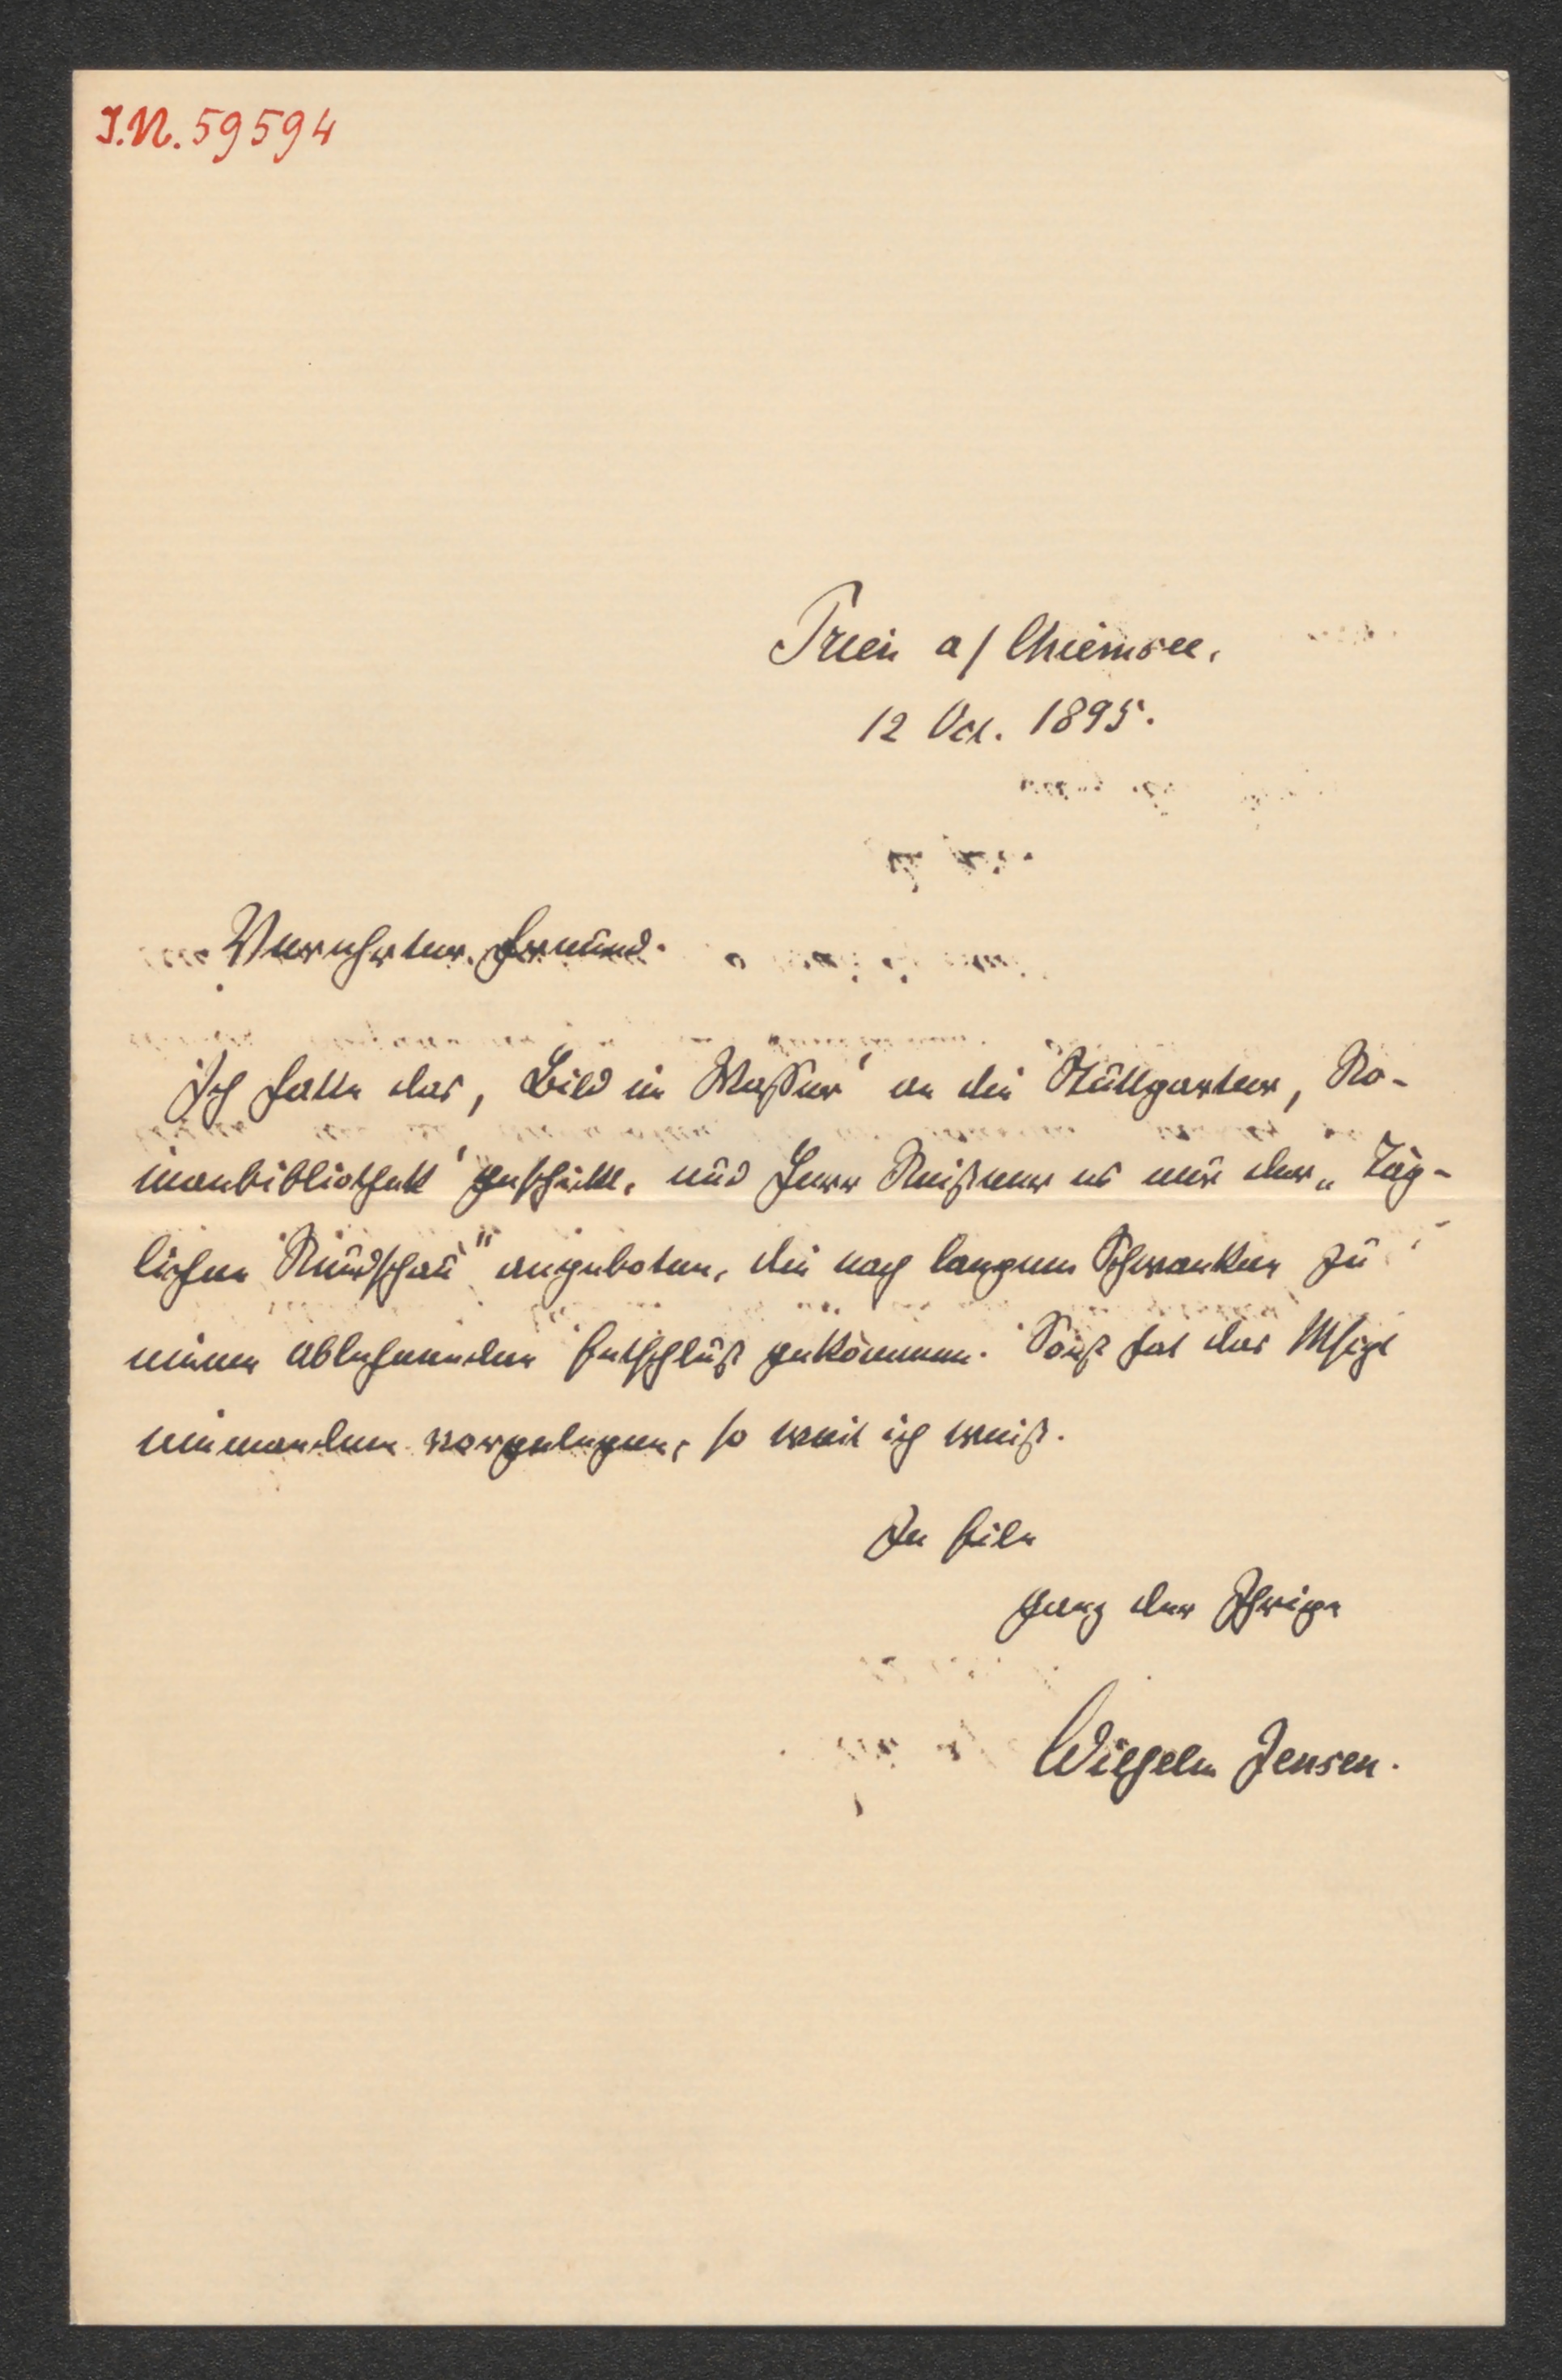 I.N. 59594
Prien a/ Chiemsee,
12 Oct. 1895.
Verehrter Freund.
Ich hatte das ‚Bild im Wasser‘ an die Stuttgarter ‚Ro-
manbibliothek‘ geschickt, und Herr Reißner es nur der „Täg-
lichen Rundschau“ angeboten, die nach langem Schwanken zu
einem ablehnenden Entschluß gekommen. Sonst hat das Mskpt
niemandem vorgelegen, so weit ich weiß.
In Eile
ganz der Ihrige
Wilhelm Jensen.